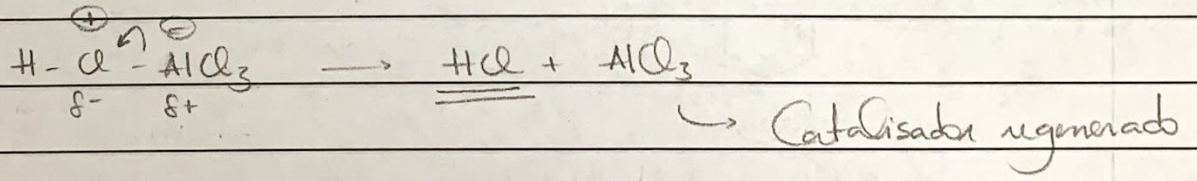 ⊕ ⊖
H - Cl - AlCl₃ → HCl + AlCl₃
δ- δ+
↳ Catalisador regenerado